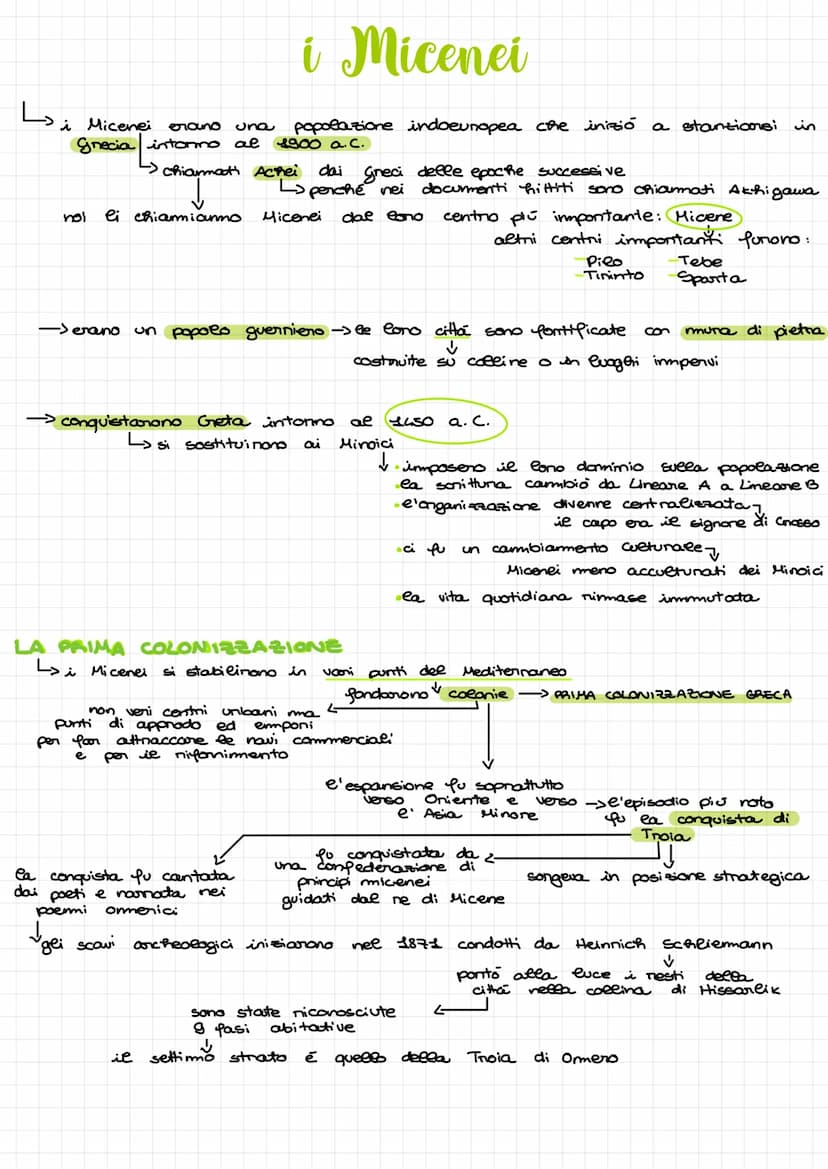 i Micenei
i Micenei erano una popolazione indoeuropea che iniziò a stanziarsi in
Grecia intorno al 1900 a.C.
chiamati Achei dai Greci delle epoche successive
perché nei documenti hittiti sono chiamati Akhigawa
noi li chiamiamo Micenei dal loro centro più importante: Micene
altri centri importanti furono:
-Pilo -Tebe
-Tirinto -Sparta
→ erano un popolo guerriero → le loro città sono fortificate con mura di pietra
costruite su colline o in luoghi impervi
→ conquistarono Creta intorno al 1450 a.C.
si sostituirono ai Minoici
• imposero il loro dominio sulla popolazione
• la scrittura cambiò da Lineare A a Lineare B
• l'organizzazione divenne centralizzata
il capo era il signore di Cnosso
• ci fu un cambiamento culturale
Micenei meno acculturati dei Minoici
• la vita quotidiana rimase immutata
LA PRIMA COLONIZZAZIONE
i Micenei si stabilirono in vari punti del Mediterraneo
fondarono colonie → PRIMA COLONIZZAZIONE GRECA
non veri centri urbani ma
punti di approdo ed empori
per far attraccare le navi commerciali
e per il rifornimento
l'espansione fu soprattutto
verso Oriente e verso → l'episodio più noto
l'Asia Minore fu la conquista di
Troia
fu conquistata da
una confederazione di
principi micenei
guidati dal re di Micene
sorgeva in posizione strategica
la conquista fu cantata
dai poeti e narrata nei
poemi omerici
gli scavi archeologici iniziarono nel 1871 condotti da Heinrich Schliemann
portò alla luce i resti della
città nella collina di Hissarlik
sono state riconosciute
9 fasi abitative
il settimo strato è quello della Troia di Omero